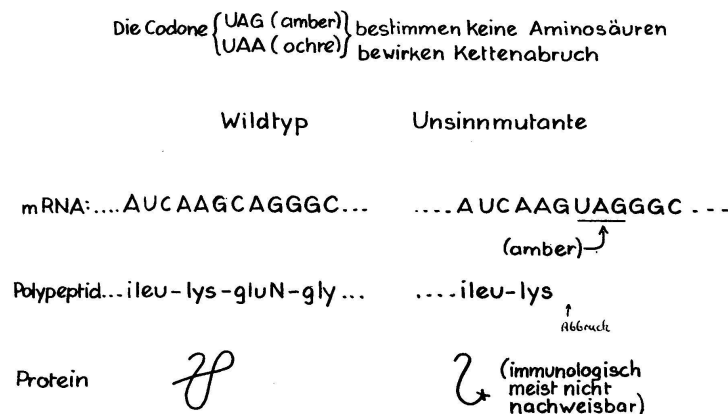 Die Codone { UAG (amber) } bestimmen keine Aminosäuren
{ UAA (ochre) } bewirken Kettenabruch
Wildtyp Unsinnmutante
mRNA:....AUCAAGCAGGGC... ....AUCAAGUAGGGC...
(amber)
Polypeptid...ileu-lys-gluN-gly... ....ileu-lys
Abbruch
Protein (immunologisch
meist nicht
nachweisbar)